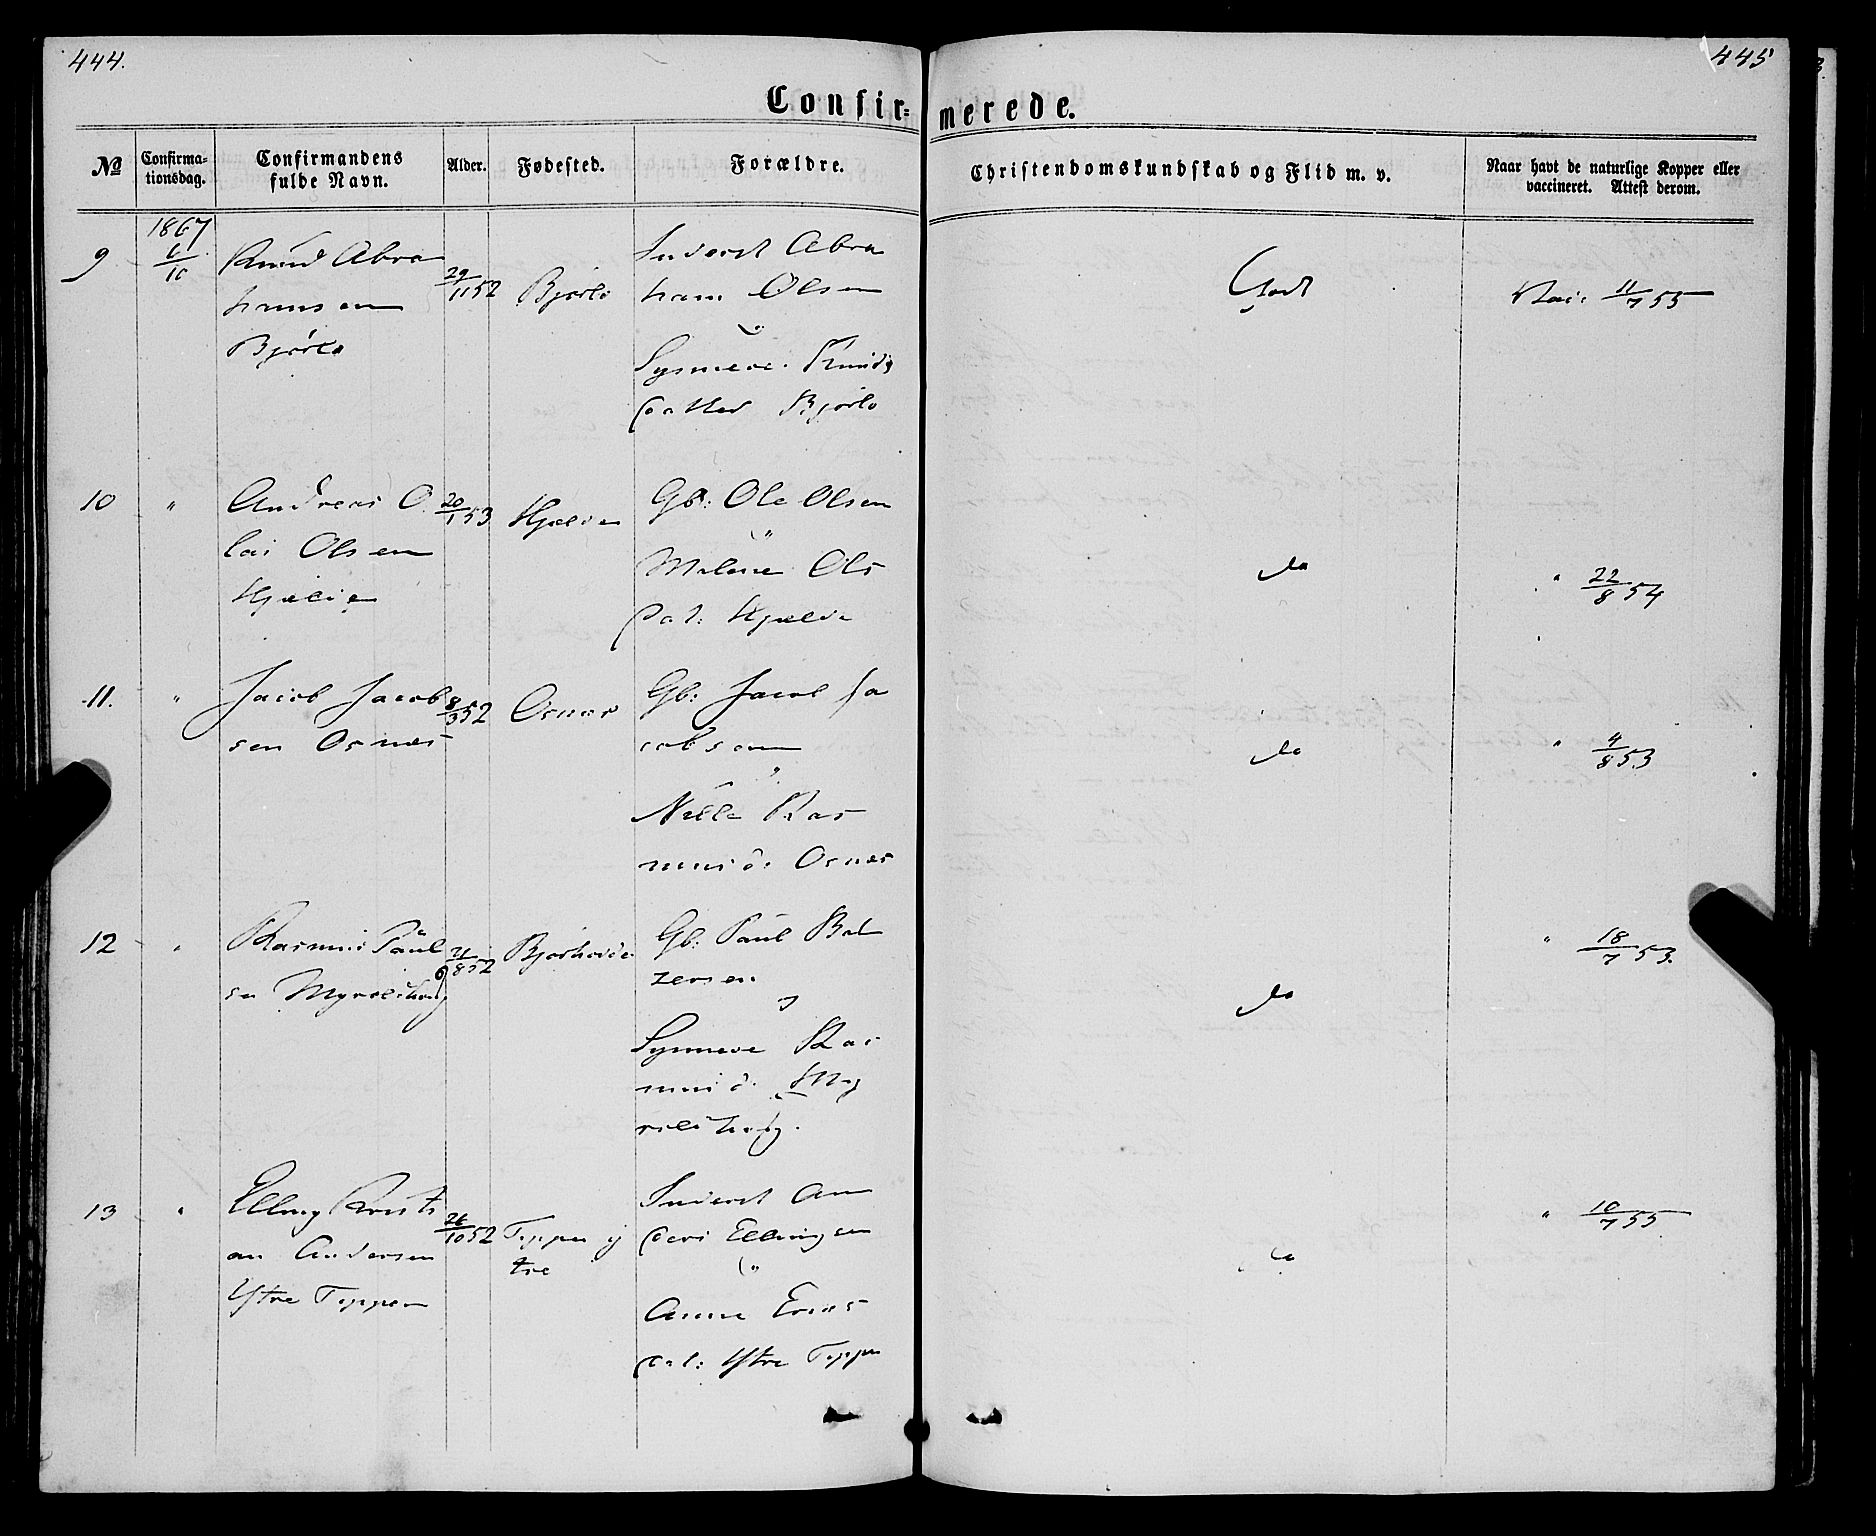 444.
445
Confir=
merede.
No
Confirma-
tionsdag.
Confirmandens
fulde Navn.
Alder.
Fødested.
Forældre.
Christendomskundskab og Flid m. v.
Naar havt de naturlige Kopper eller
vaccineret. Attest derom.
1867
9
6/10
Knud Abra
hamsen
Bjørlo
29/11 52
Bjørlo
Inderst Abra
ham Olsen
"
Synneve Knuds
datter Bjørlo
Godt
Vac: 11/7 55
10
"
Andreas O
lai Olsen
Hjelle
20/1 53
Gb: Ole Olsen
"
Malene Ols
dat:
do
" 22/8 54
11.
"
Jacob Jacob
sen Osnes
8/3 52
Osnes
Gb: Jacob Ja
cobsen
"
Nille Ras
musd: Osnes
do
" 4/8 53
12
"
Rasmus Paul
sen
21/8 52
Gb: Paul Bal
zersen
"
Synneve Ras
musd. My
do
" 18/7 53.
13
"
Elling Kristi
an Andersen
Ytre Toppen
26/10 52
Toppen y
tre
Inderst An
ders Ellingsen
"
Anne Eras
dat: Ytre Toppen
do
" 10/7 55